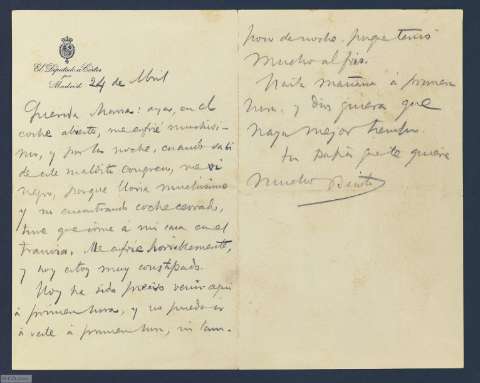 El Diputado á Córtes
por
Madrid
24 de Abril
Querida Mama: ayer, en el
coche abierto, me enfrié muchísi-
mo, y por la noche, cuando salí
de este maldito congreso, me vi
negro, porque llovía muchísimo
y no encontrando coche cerrado,
tuve que irme á mi casa en el
tranvía. Me enfrié horriblemente,
y hoy estoy muy constipado.
Hoy ha sido preciso venir aquí
á primera hora, y no puedo ir
á verte á primera hora, ni tam-
poco de noche, porque temo
mucho al frio.
Hasta mañana á primera
hora, y Dios quiera que
haya mejor tiempo.
tu que te quiere
mucho